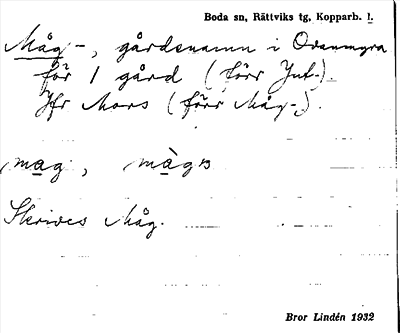 Boda sn, Rättviks tg, Kopparb. l.
Måg-, gårdsnamn i Ovanmyra
för 1 gård (förr Jut-).
Jfr Mars (förr Måg-).
mag, màgs
Skrives Måg.
Bror Lindén 1932